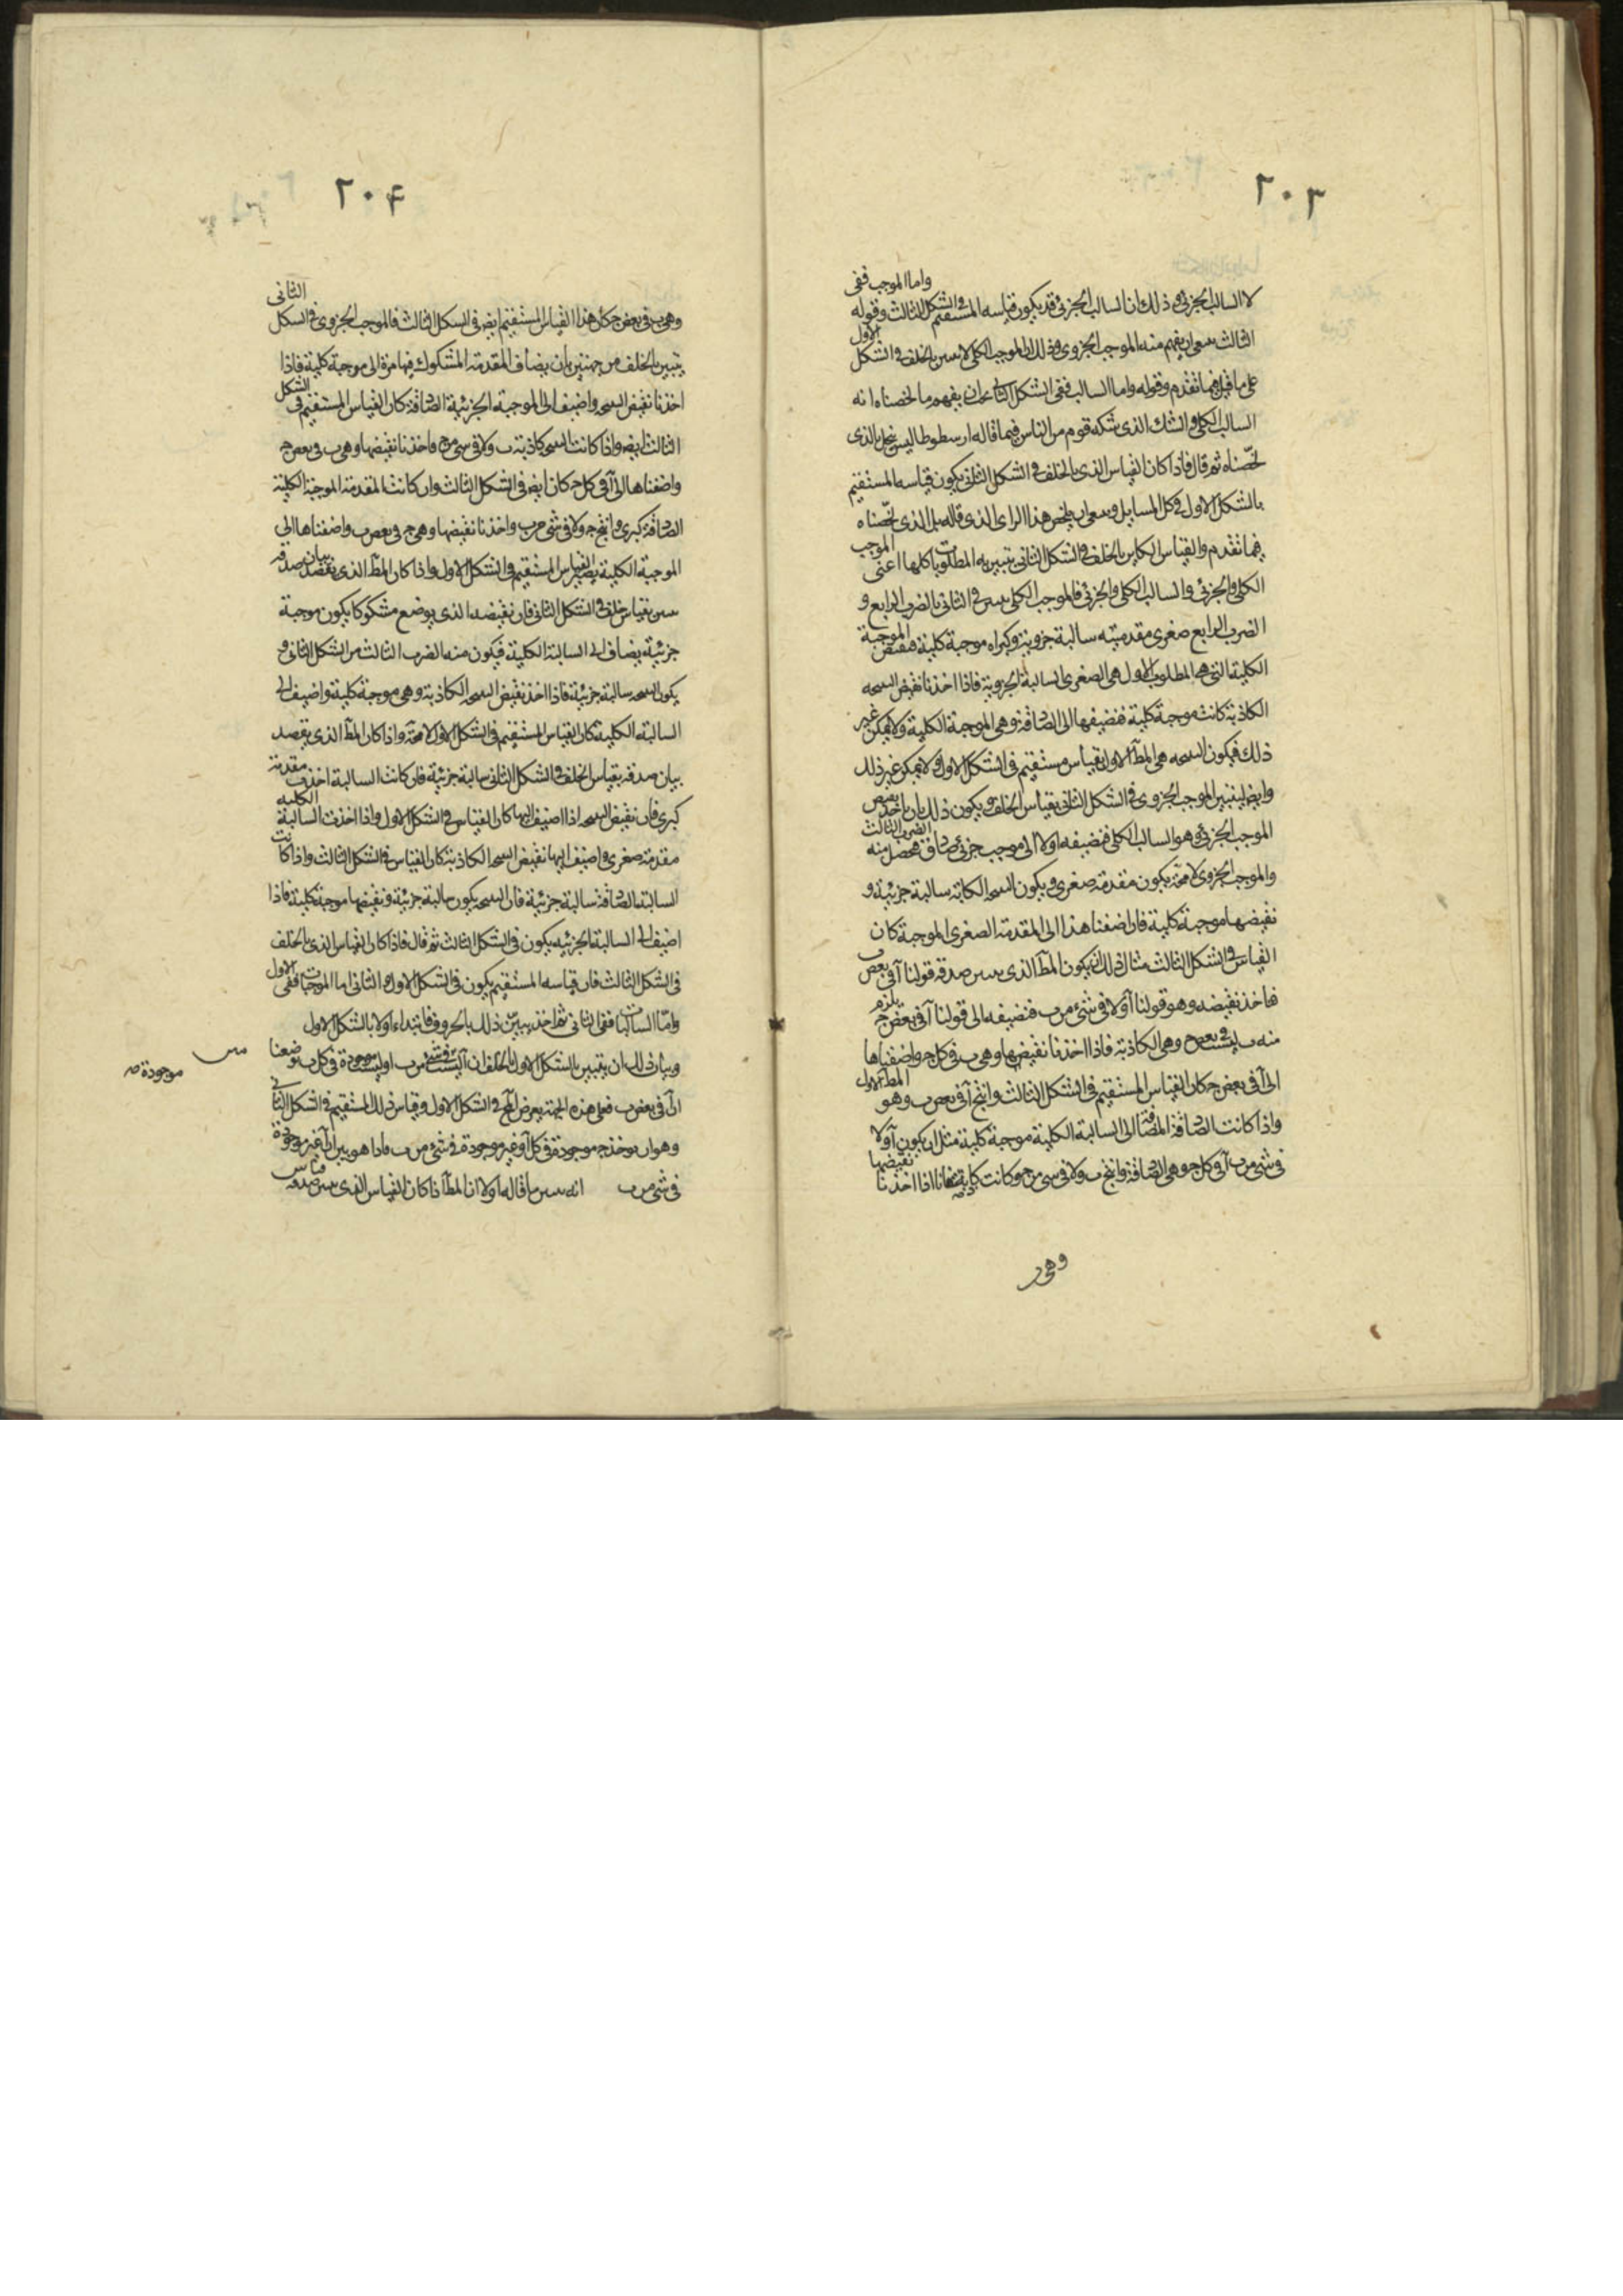 ٢٠٣
واما الموجب ففى
لا السالب الجزئى و ذلك ان السالب الجزئى قد يكون قياسه المستقيم فى الشكل الثالث وقوله
الثالث ينبغى ان يفهم منه الموجب الجزوى وذلك ان الموجب الكلى لا يتبين بالخلف فى الشكل الاول
على ما قيل فيما تقدم وقوله واما السالب ففى الشكل الثانى ان يفهم ما لخصناه انه
السالب الكلى والشك الذى شكه قوم من الناس فيما قاله ارسطوطاليس ينحل بالذى
لخّصناه ثم قال فاذا كان القياس الذى بالخلف فى الشكل الثانى يكون قياسه المستقيم
بالشكل الاول فى كل المسايل وينبغى ان يلخص هذا الراى الذى قاله بل الذى لخّصناه
فيما تقدم والقياس الكاين بالخلف فى الشكل الثانى تتبين به المطلوبات كلها اعنى الموجب
الكلى والجزئى والسالب الكلى والجزئى فالموجب الكلى يتبين فى الثانى بالضرب الرابع و
الضرب الرابع صغرى مقدمتيه سالبة جزوية وكبراه موجبة كلية فنقيض الموجبة
الكلية التى هى المطلوب الاول هى الصغرى السالبة الجزوية فاذا اخذنا نقيض النتيجه
الكاذبة كانت موجبة كلية فنضيفها الى الصادقة وهى الموجبة الكلية ولا يمكن غير
ذلك فيكون النتيجه هى المط الاول بقياس مستقيم فى الشكل الاول ولا يمكن غير ذلك
وايضا يتبين الموجب الجزوى فى الشكل الثانى بقياس الخلف ويكون ذلك بان ياخذ نقيض
الموجب الجزئى وهو السالب الكلى فنضيفه اولا الى موجب جزئى صادق فيحصل منه الضرب الثالث
والموجب الجزوى لا محة يكون مقدمة صغرى ويكون النتيجه الكاذبة سالبة جزئية و
نقيضها موجبة كلية فان اضفنا هذا الى المقدمة الصغرى الموجبة كان
القياس فى الشكل الثالث مثال ذلك ان يكون المط الذى يتبين صدقه قولنا آ فى بعض ب
فناخذ نقيضه وهو قولنا آ ولا فى شئ من ب فنضيفه الى قولنا آ فى بعض ج يلزم
منه ب ليست فى بعض ج وهى الكاذبة فاذا اخذنا نقيضها وهى ب فى كل ج واضفناها
الى آ فى بعض ج كان القياس المستقيم فى الشكل الثالث وانتج آ فى بعض ب وهو المط الاول
واذا كانت الصادقة المضافة الى السالبة الكلية موجبة كلية مثل ان يكون آ ولا
فى شئ من ب آ فى كل ج وهى الصادقة وانتج ب ولا فى شئ من ج وكانت كاذبة فانا اذا اخذنا نقيضها
وهى ب
٢٠۴
وهى ب فى بعض ج كان هذا القياس المستقيم ايض فى الشكل الثالث فالموجب الجزوى فى الشكل الثانى
يتبين بالخلف من جهتين بان يضاف المقدمة المشكوك فيها مرة الى موجبة كلية فاذا
اخذنا نقيض النتيجه واضيف الى الموجبة الجزئية الصادقة كان القياس المستقيم فى الشكل
الثالث ايض واذا كانت النتيجه كاذبة ب ولا فى شئ من ج واخذنا نقيضها وهى ب فى بعض ج
واضفناها الى آ فى كل ج كان ايض فى الشكل الثالث وان كانت المقدمة الموجبة الكلية
الصادقة كبرى وانتج ج ولا فى شئ من ب واخذنا نقيضها وهى ج فى بعض ب واضفناها الى
الموجبة الكلية يصير القياس المستقيم فى الشكل الاول واذا كان المط الذى نقصد بيان صدقه
يتبين بقياس خلف فى الشكل الثانى فان نقيضه الذى يوضع مشكوكا يكون موجبة
جزئية يضاف الى السالبة الكلية فيكون منه الضرب الثالث من الشكل الثانى و
يكون النتيجه سالبة جزئية فاذا اخذ نقيض النتيجه الكاذبة وهى موجبة كلية واضيف الى
السالبة الكلية كان القياس المستقيم فى الشكل الاول لا محة واذا كان المط الذى يقصد
بيان صدقه بقياس الخلف فى الشكل الثانى سالبة جزئية فان كانت السالبة اخذت مقدمة
كبرى فان نقيض النتيجه اذا اضيف اليها كان القياس فى الشكل الاول واذا اخذت السالبة الكلية
مقدمة صغرى واضيف اليها نقيض النتيجه الكاذبة كان القياس فى الشكل الثالث واذا كانت
السالبة الصادقة سالبة جزئية فان النتيجه يكون سالبة جزئية ونقيضها موجبة كلية فاذا
اضيف الى السالبة الجزئيه يكون فى الشكل الثالث ثم قال فاذا كان القياس الذى بالخلف
فى الشكل الثالث فان قياسه المستقيم يكون فى الشكل الاول والثانى اما الموجبات ففى الاول
وامّا السالبات ففى الثانى ثم اخذ يبين ذلك بالحروف فابتداء اولا بالشكل الاول
وبيان ذلك ان يتبين بالشكل الاول بالخلف ان آ ليست فى شئ من ب او ليست موجودة فى كل ب بوضعنا
موجودة صه
ان آ فى بعض ب فعلى هذه الجهة يعرض الخلف فى الشكل الاول وقياس ذلك المستقيم فى الشكل الثانى
وهو ان يوخذ ج موجودة فى كل آ وغير موجودة فى شئ من ب فاذا هو بين ان آ غير موجودة
فى شئ من ب انه يتبين ما قاله اولا ان المط اذا كان القياس الذى يتبين صدقه قياس